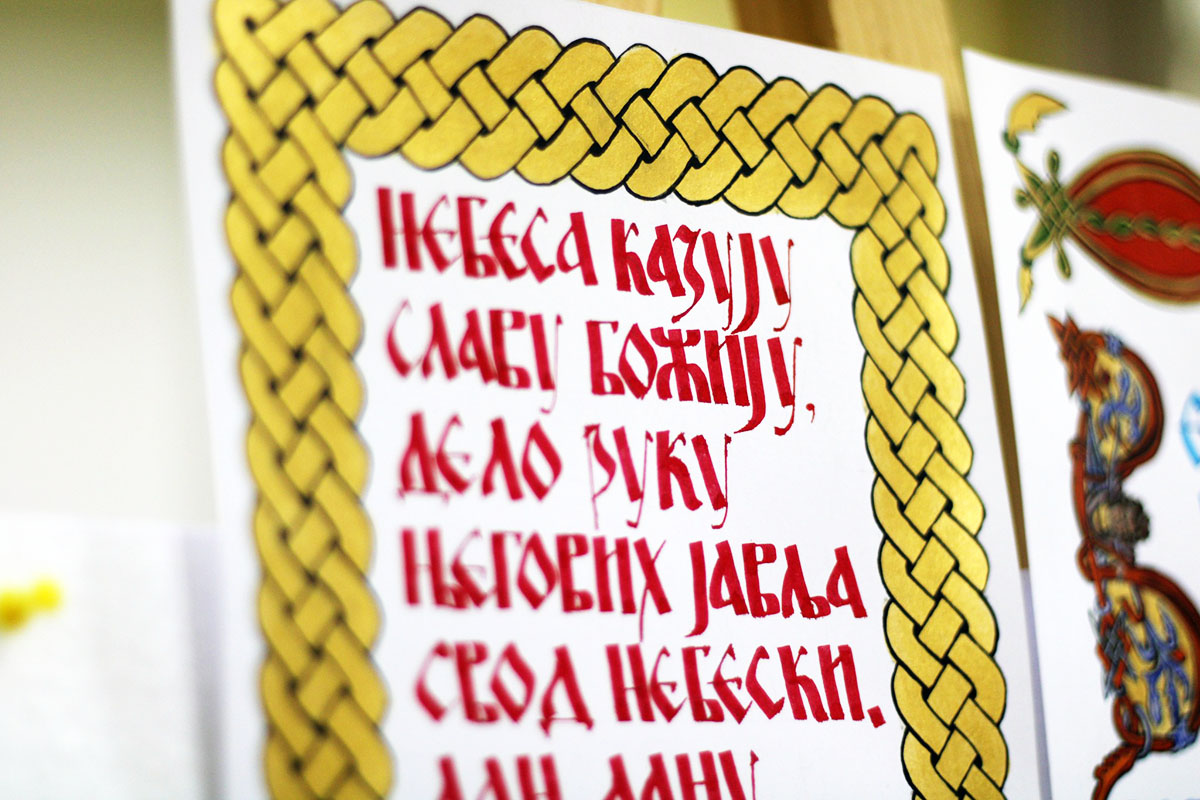 Небеса казују
славу Божију,
дело руку
његових јавља
свод небески.
Дан дану